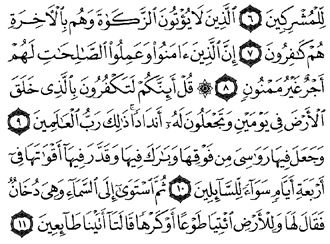 لِّلْمُشْرِكِينَ ٦ ٱلَّذِينَ لَا يُؤْتُونَ ٱلزَّكَوٰةَ وَهُم بِٱلْأَخِرَةِ
هُمْ كَٰفِرُونَ ٧ إِنَّ ٱلَّذِينَ ءَامَنُوا۟ وَعَمِلُوا۟ ٱلصَّٰلِحَٰتِ لَهُمْ
أَجْرٌ غَيْرُ مَمْنُونٍ ٨ ۞ قُلْ أَئِنَّكُمْ لَتَكْفُرُونَ بِٱلَّذِى خَلَقَ
ٱلْأَرْضَ فِى يَوْمَيْنِ وَتَجْعَلُونَ لَهُۥٓ أَندَادًا ۚ ذَٰلِكَ رَبُّ ٱلْعَٰلَمِينَ ٩
وَجَعَلَ فِيهَا رَوَٰسِىَ مِن فَوْقِهَا وَبَٰرَكَ فِيهَا وَقَدَّرَ فِيهَآ أَقْوَٰتَهَا فِىٓ
أَرْبَعَةِ أَيَّامٍ سَوَآءً لِّلسَّآئِلِينَ ١٠ ثُمَّ ٱسْتَوَىٰٓ إِلَى ٱلسَّمَآءِ وَهِىَ دُخَانٌ
فَقَالَ لَهَا وَلِلْأَرْضِ ٱئْتِيَا طَوْعًا أَوْ كَرْهًا قَالَتَآ أَتَيْنَا طَآئِعِينَ ١١